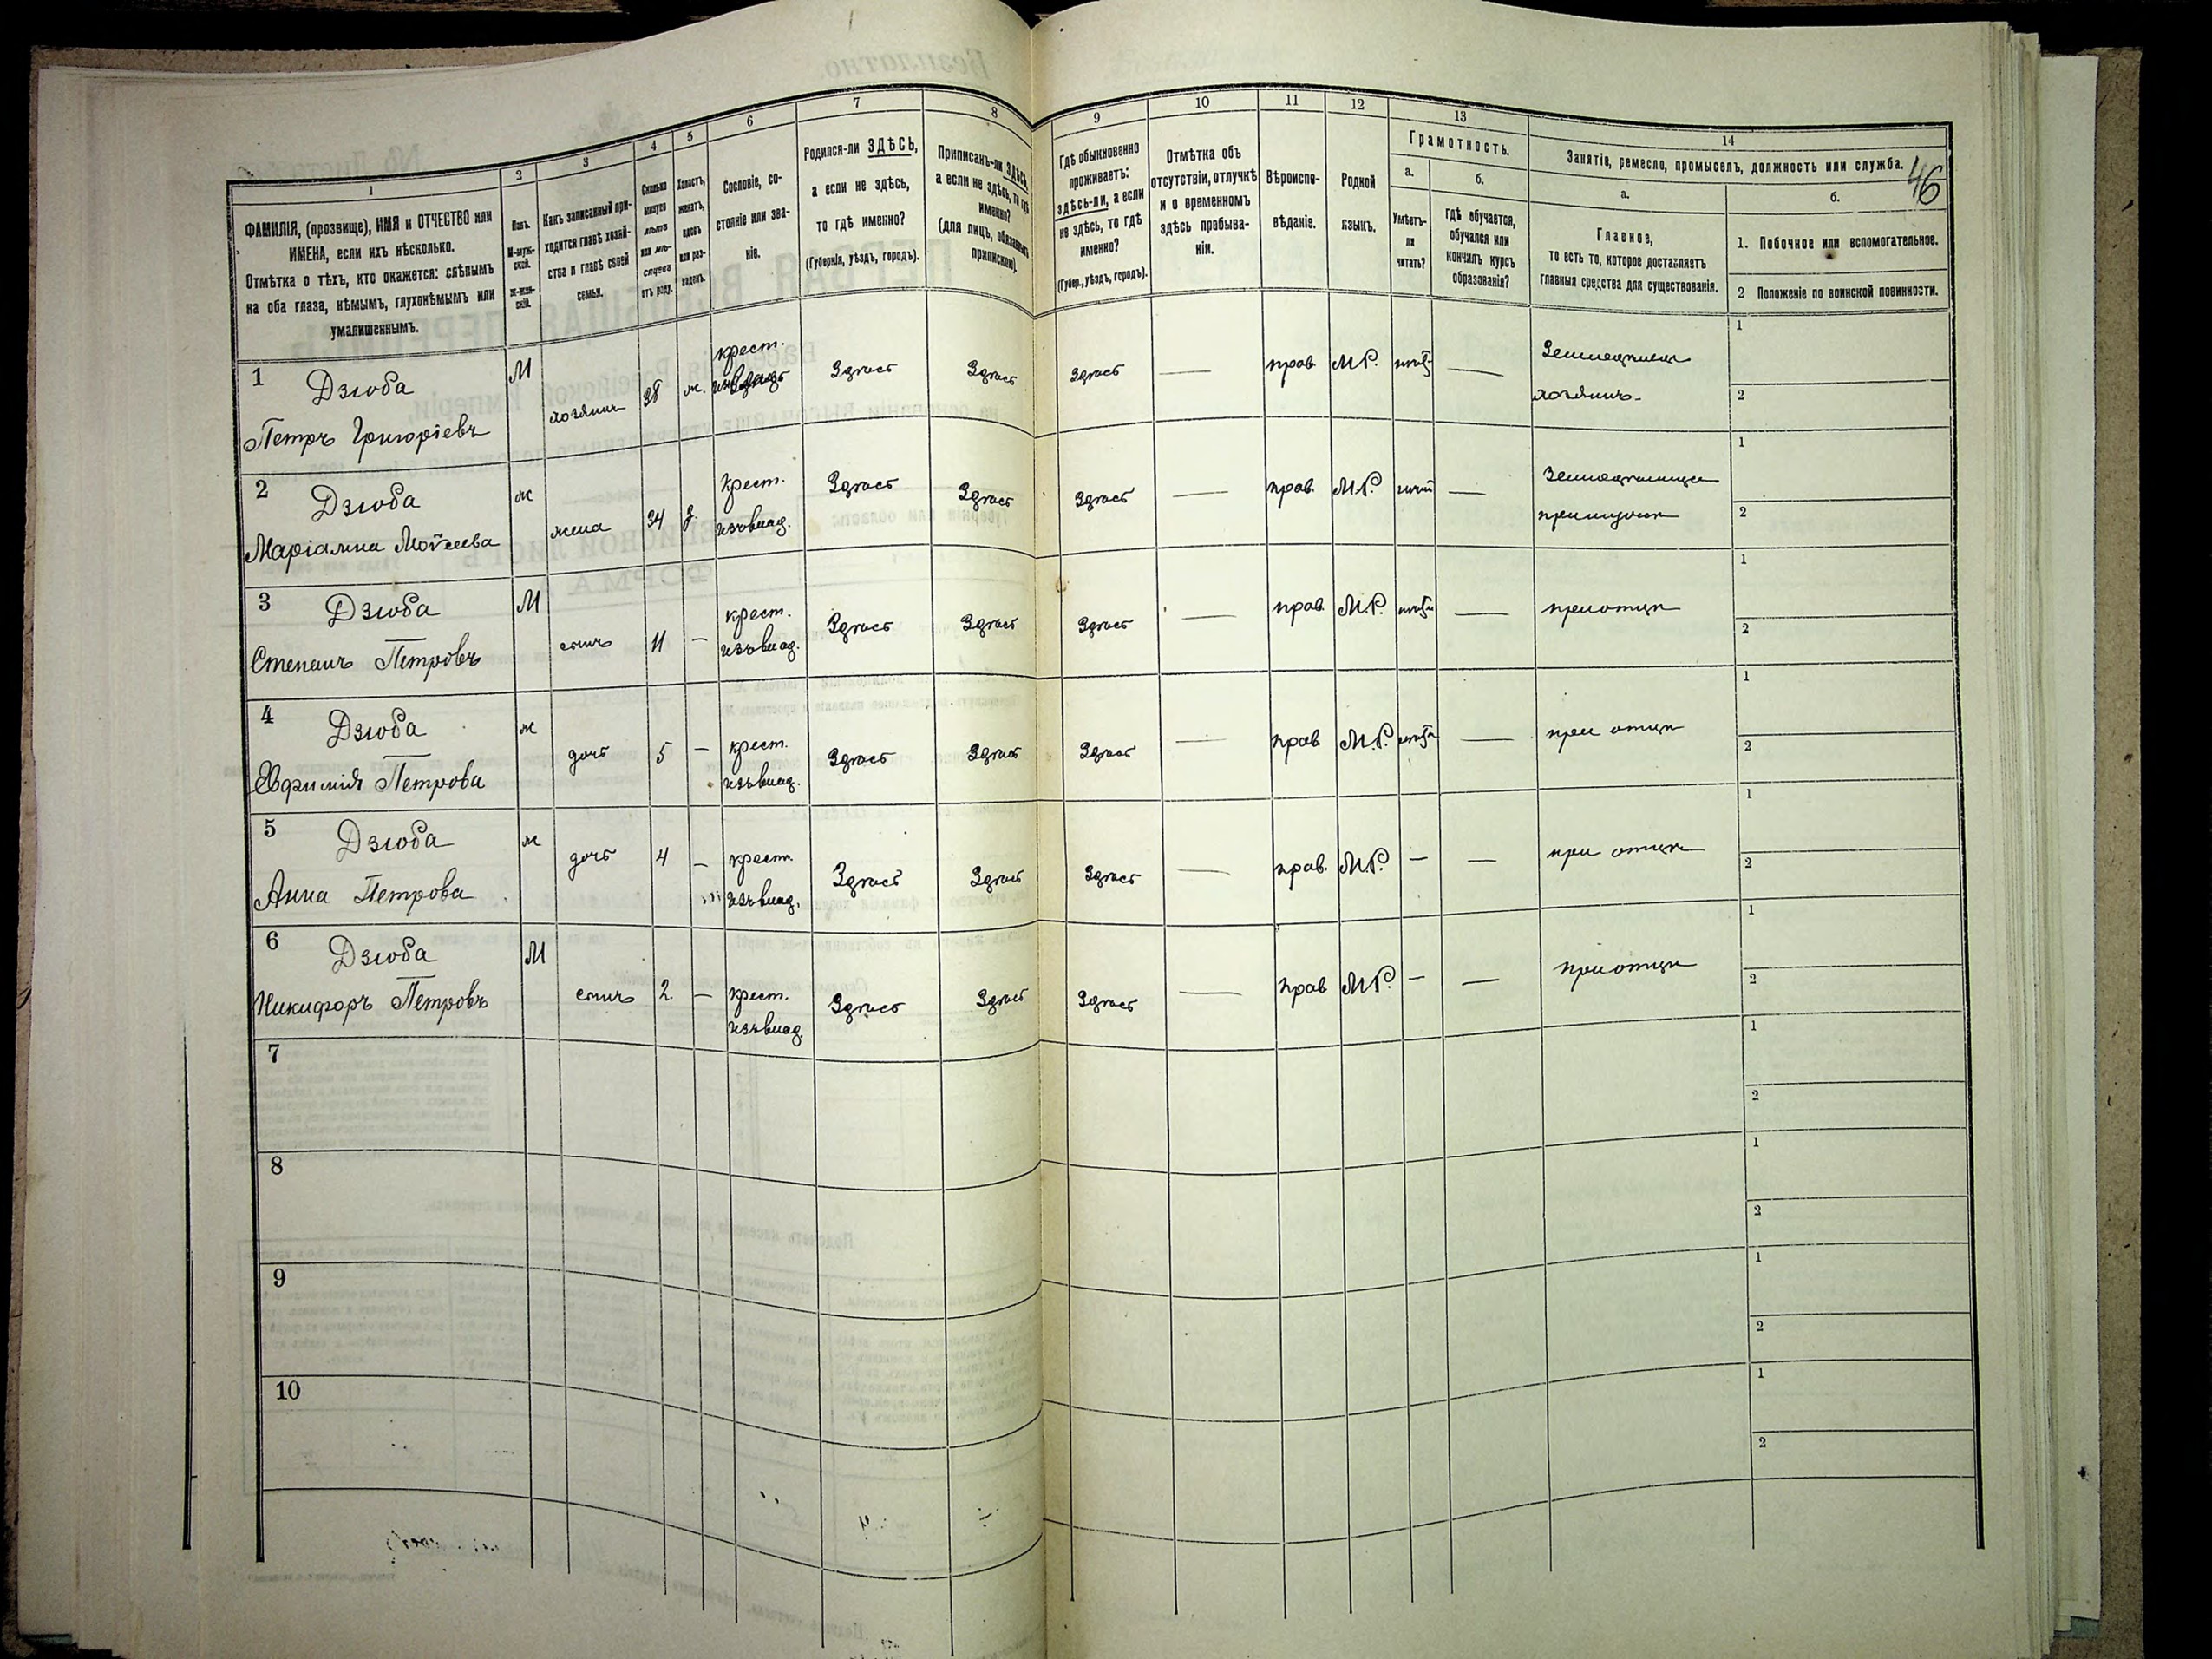 46
1
2
3
4
5
6
7
8
9
10
11
12
13
14
ФАМИЛІЯ, (прозвище), ИМЯ и ОТЧЕСТВО или
ИМЕНА, если ихъ нѣсколько.
Отмѣтка о тѣхъ, кто окажется: слѣпымъ
на оба глаза, нѣмымъ, глухонѣмымъ или
умалишеннымъ.
Полъ.
М-муж-
ской.
Ж-жен-
скій.
Какъ записанный при-
ходится главѣ хозяй-
ства и главѣ своей
семьи.
Сколько
минуло
лѣтъ
или мѣ-
сяцевъ
отъ роду.
Холостъ,
женатъ,
вдовъ
или раз-
веденъ.
Сословіе, со-
стояніе или зва-
ніе.
Родился-ли ЗДѢСЬ,
а если не здѣсь,
то гдѣ именно?
(Губернія, уѣздъ, городъ).
Приписанъ-ли ЗДѢСЬ,
а если не здѣсь, то гдѣ
именно?
(для лицъ, обязанныхъ
припискою).
Гдѣ обыкновенно
проживаетъ:
здѣсь-ли, а если
не здѣсь, то гдѣ
именно?
(Губер., уѣздъ, городъ).
Отмѣтка объ
отсутствіи, отлучкѣ
и о временномъ
здѣсь пребыва-
ніи.
Вѣроиспо-
вѣданіе.
Родной
языкъ.
Грамотность.
а.
Умѣетъ-
ли
читать?
б.
Гдѣ обучается,
обучался или
кончилъ курсъ
образованія?
Занятіе, ремесло, промыселъ, должность или служба.
а.
Главное,
то есть то, которое доставляетъ
главныя средства для существованія.
б.
1. Побочное или вспомогательное.
2 Положеніе по воинской повинности.
1 Дзюба
Петръ Григоріевъ
М
хозяинъ
38
ж.
крест.
Здѣсь
Здѣсь
Здѣсь
—
прав.
М.Р.
—
хозяинъ
1
2
2 Дзюба
Маріамна Моѵсеева
ж
жена
34
з.
крест.
изъ влад.
Здѣсь
Здѣсь
Здѣсь
—
прав.
М.Р.
—
1
2
3 Дзюба
Степанъ Петровъ
М
сынъ
11
—
крест.
изъ влад.
Здѣсь
Здѣсь
Здѣсь
—
прав.
М.Р.
—
при отцѣ
1
2
4 Дзюба
Ефимія Петрова
ж
дочь
5
—
крест.
изъ влад.
Здѣсь
Здѣсь
Здѣсь
—
прав
М.Р.
—
при отцѣ
1
2
5 Дзюба
Анна Петрова
ж
дочь
4
—
крест.
изъ влад.
Здѣсь
Здѣсь
Здѣсь
—
прав.
М.Р.
—
—
при отцѣ
1
2
6 Дзюба
Никифоръ Петровъ
М
сынъ
2.
—
крест.
изъ влад.
Здѣсь
Здѣсь
Здѣсь
—
прав
М.Р.
—
—
при отцѣ
1
2
7
1
2
8
1
2
9
1
2
10
1
2